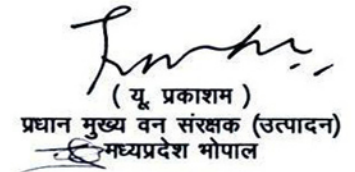 ( यू. प्रकाशम )
प्रधान मुख्य वन संरक्षक (उत्पादन)
मध्यप्रदेश भोपाल